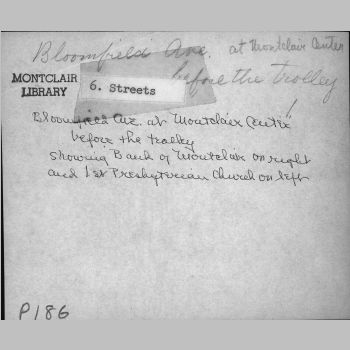 Bloomfield Ave. at Montclair Center
before the trolley
MONTCLAIR
LIBRARY
6. Streets
Bloomfield Ave. at Montclair Center!
before the trolley
showing Bank of Montclair on right
and 1st Presbyterian Church on left
P186